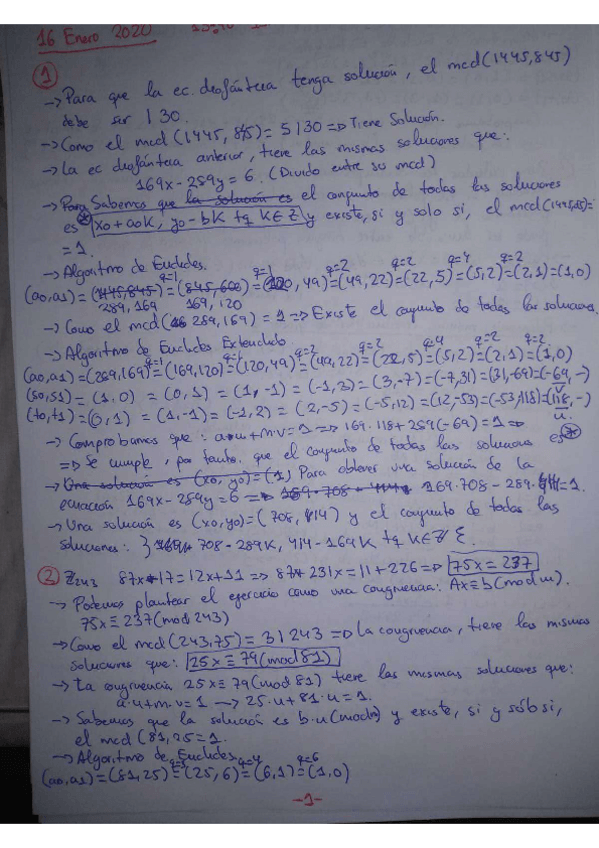 16 Enero 2020
1
→ Para que la ec. diofántica tenga solución, el mcd(1445,845)
debe ser | 30.
→ Como el mcd(1445, 845) = 5 | 30 => Tiene Solución.
→ La ec diofántica anterior, tiene las mismas soluciones que:
169x - 289y = 6. (Divido entre su mcd)
→ Para Sabemos que la solución es el conjunto de todas las soluciones
es x0 + a0k, y0 - bk tq k∈Z y existe, si y solo si, el mcd
= 1.
→ Algoritmo de Euclides.
q=1 q=1 q=2 q=2 q=4 q=2
(a0,a1) = (1445,845) = (845,600) = (120,49) = (49,22) = (22,5) = (5,2) = (2,1) = (1,0)
289,169 169,120
→ Como el mcd(289,169) = 1 => Existe el conjunto de todas las soluciones.
→ Algoritmo de Euclides Extendido
q=1 q=2 q=2 q=4 q=2 q=2
(a0,a1) = (289,169) = (169,120) = (120,49) = (49,22) = (22,5) = (5,2) = (2,1) = (1,0)
(s0,s1) = (1,0) = (0,1) = (1,-1) = (-1,3) = (3,-7) = (-7,31) = (31,-69) = (-69,-)
(t0,t1) = (0,1) = (1,-1) = (-1,2) = (2,-5) = (-5,12) = (12,-53) = (-53,118) = (118,-)
u.
→ Comprobamos que: a·u + m·v = 1 => 169·118 + 289(-69) = 1 =>
=> Se cumple, por tanto, que el conjunto de todas las soluciones es *
→ Una solución es (x0,y0) = (1) Para obtener una solución de la
ecuación 169x - 289y = 6 => 169·708 - 289· = 1.
→ Una solución es (x0,y0) = (708, 414) y el conjunto de todas las
soluciones: 708 - 289k, 414 - 169k tq k∈Z
2 Z243 87x + 17 = 12x + 11 => 87 + 231x = 11 + 226 => 75x = 237
→ Podemos plantear el ejercicio como una congruencia: Ax ≡ b (mod m).
75x ≡ 237 (mod 243)
→ Como el mcd(243,75) = 3 | 243 => La congruencia, tiene las mismas
soluciones que: 25x ≡ 79 (mod 81)
→ La congruencia 25x ≡ 79 (mod 81) tiene las mismas soluciones que:
a·u + m·v = 1 → 25·u + 81·u = 1.
→ Sabemos que la solución es b·u (mod m) y existe, si y sólo si,
el mcd(81,25 = 1.
→ Algoritmo de Euclides.
q=3 q=4 q=6
(a0,a1) = (81,25) = (25,6) = (6,1) = (1,0)
-1-